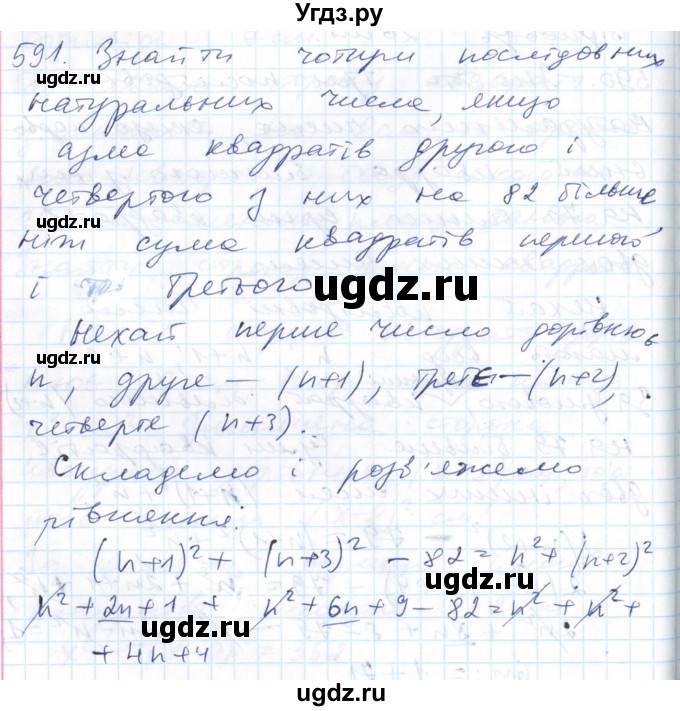 Угдз.ру
591. Знайти чотири послідовних
натуральних числа, якщо
сума квадратів другого і
четвертого з них на 82 більше,
ugdz.ru
ніж сума квадратів першого
і третього.
ugdz.ru
Нехай перше число дорівнює
n, друге – (n+1), третє – (n+2),
четверте (n+3).
Складемо і розв'яжемо
рівняння:
(n+1)² + (n+3)² - 82 = n² + (n+2)²
n² + 2n + 1 + n² + 6n + 9 - 82 = n² + n² +
+ 4n + 4
ugdz.ru
ugdz.ru
ugdz.ru